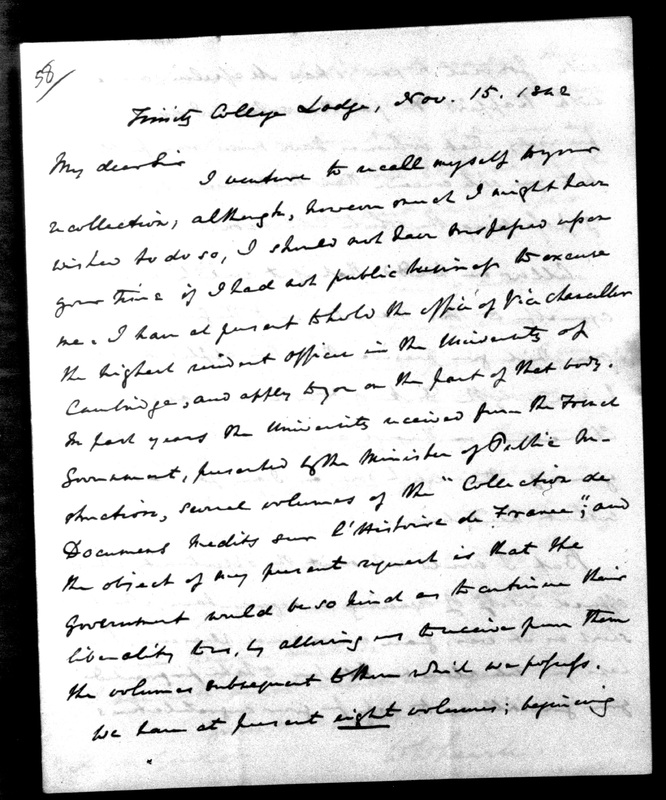 58/
Trinity College Lodge, Nov. 15. 1842
My dear Sir I venture to recall myself to your
recollection; although, however much I might have
wished to do so, I should not have trespassed upon
your time if I had not public business to excuse
me. I have at present to hold the office of Vice Chancellor
the highest resident officer in the University of
Cambridge, and apply to you on the part of that body.
In past years the University received from the French
Government, presented by the Minister of Public In-
struction, several volumes of the "Collection de
Documens Inedits sur l'Histoire de France"; and
the object of my present request is that the
Government would be so kind as to continue their
liberality to us, by allowing us to receive from them
the volumes subsequent to them which we possess.
We have at present eight volumes; beginning